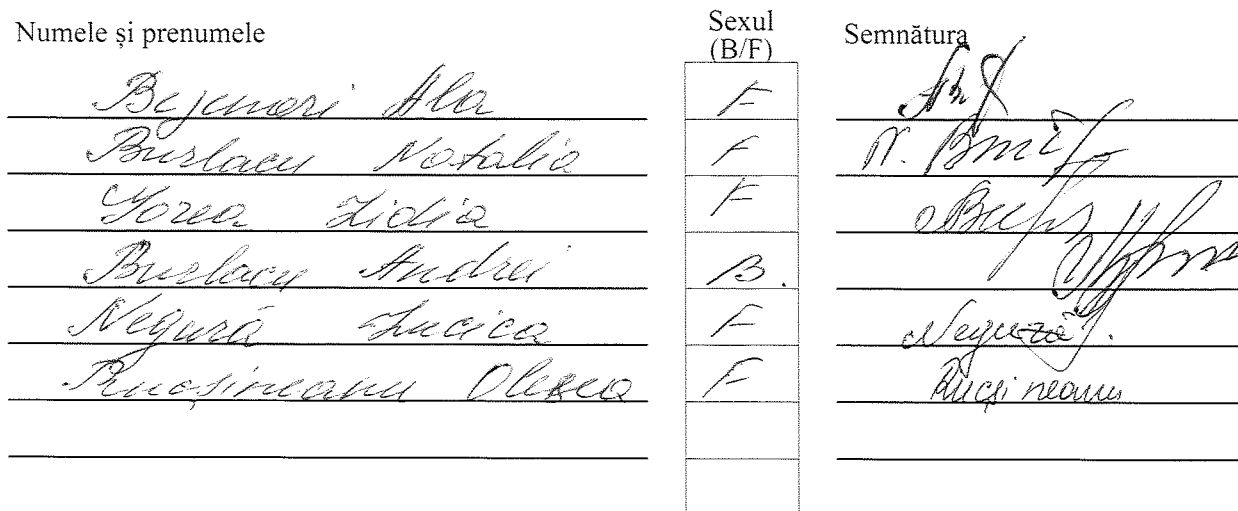 Numele și prenumele Sexul (B/F) Semnătura
Bejenari Ala F
Burlacu Natalia F
Gorea Lidia F
Burlacu Andrei B.
Negură Lucica F Negură.
Rucșineanu Olesea F Rucșineanu